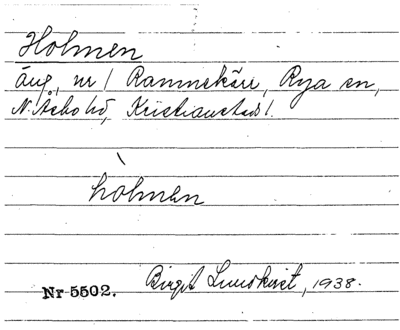 Holmen
äng, nr 1 Rammekärr, Rya sn,
N. Åsbo hd, Kristianstads l.
hòlmen
Nr 5502. Birgit Lundkvist, 1938.